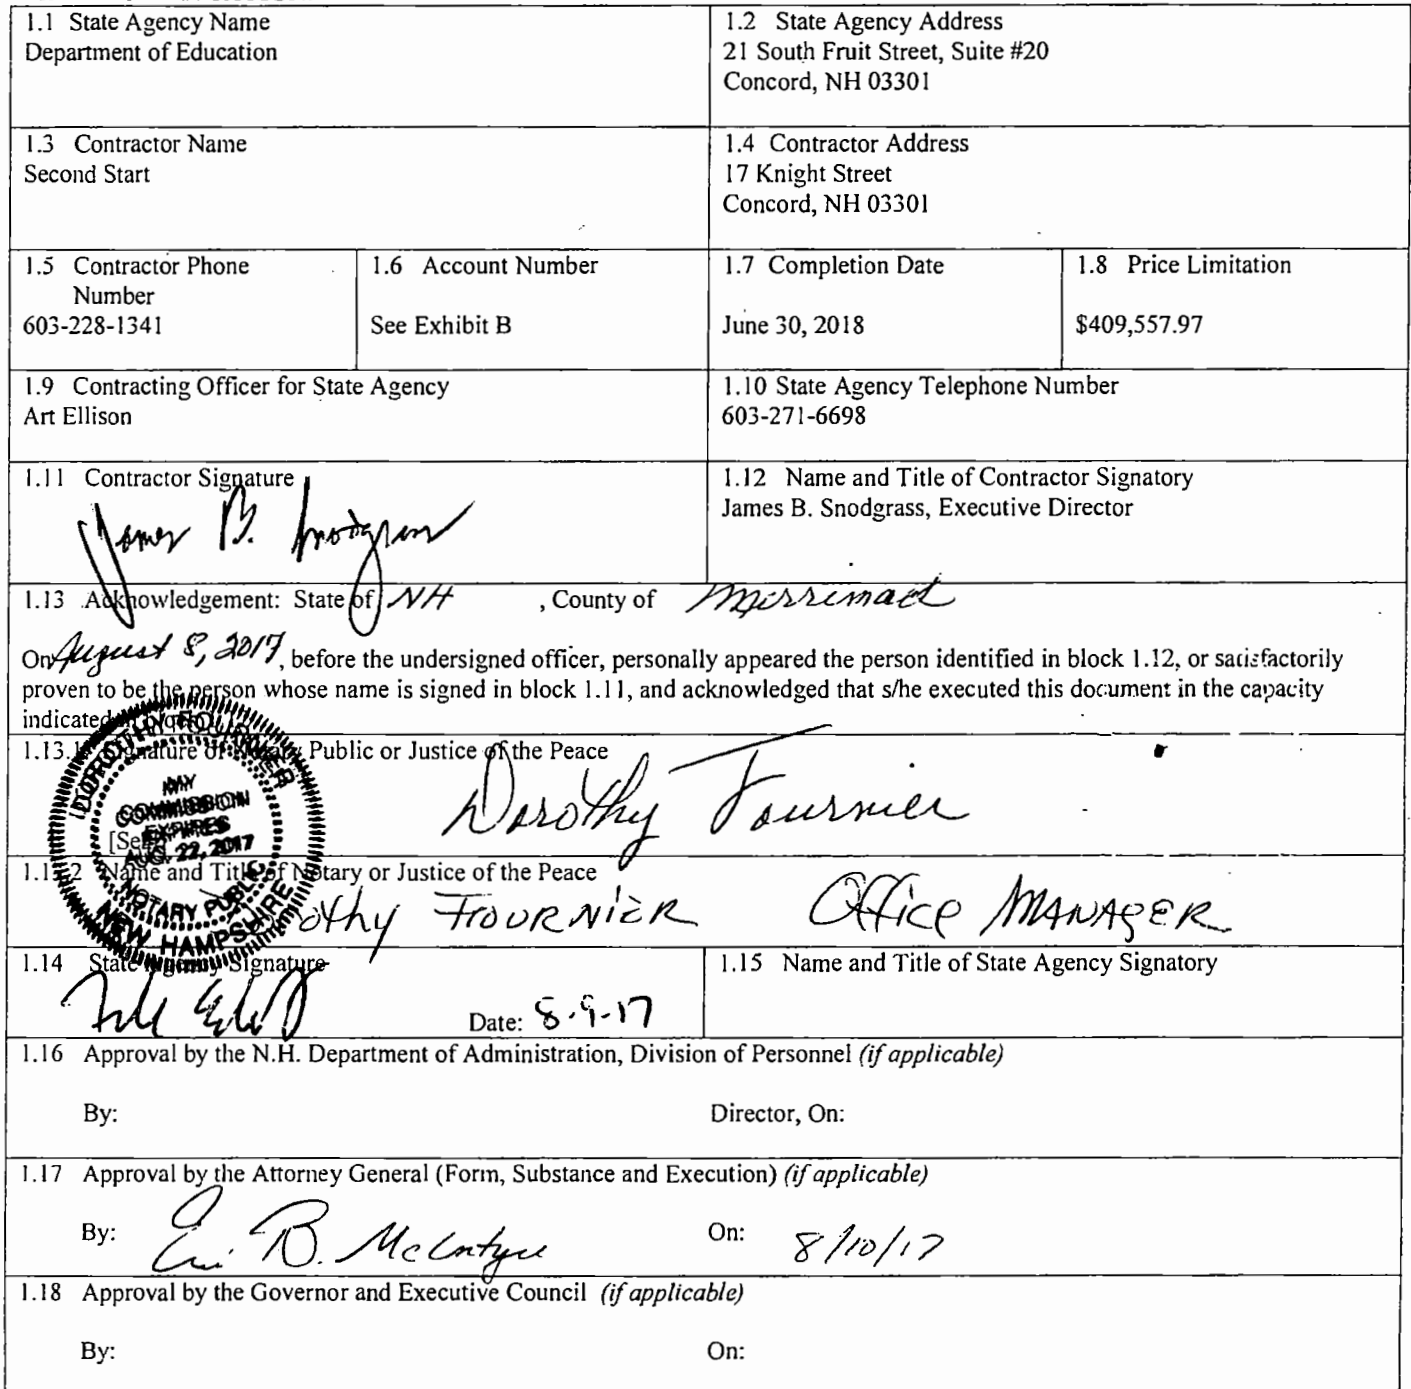 1.1 State Agency Name
Department of Education
1.2 State Agency Address
21 South Fruit Street, Suite #20
Concord, NH 03301
1.3 Contractor Name
Second Start
1.4 Contractor Address
17 Knight Street
Concord, NH 03301
1.5 Contractor Phone
Number
603-228-1341
1.6 Account Number
See Exhibit B
1.7 Completion Date
June 30, 2018
1.8 Price Limitation
$409,557.97
1.9 Contracting Officer for State Agency
Art Ellison
1.10 State Agency Telephone Number
603-271-6698
1.11 Contractor Signature
James B. Snodgrass
1.12 Name and Title of Contractor Signatory
James B. Snodgrass, Executive Director
1.13 Acknowledgement: State of NH , County of Merrimack
On August 8, 2017, before the undersigned officer, personally appeared the person identified in block 1.12, or satisfactorily
proven to be the person whose name is signed in block 1.11, and acknowledged that s/he executed this document in the capacity
indicated in block
1.13.1 Signature of Notary Public or Justice of the Peace
Dorothy Fournier
[Seal]
DOROTHY FOURNIER
MY
COMMISSION
EXPIRES
AUG. 22, 2017
NOTARY PUBLIC
NEW HAMPSHIRE
1.13.2 Name and Title of Notary or Justice of the Peace
othy FOURNIER Office MANAGER
1.14 State Agency Signature
Date: 8-9-17
1.15 Name and Title of State Agency Signatory
1.16 Approval by the N.H. Department of Administration, Division of Personnel (if applicable)
By:
Director, On:
1.17 Approval by the Attorney General (Form, Substance and Execution) (if applicable)
By: B. McIntyre
On: 8/10/17
1.18 Approval by the Governor and Executive Council (if applicable)
By:
On: